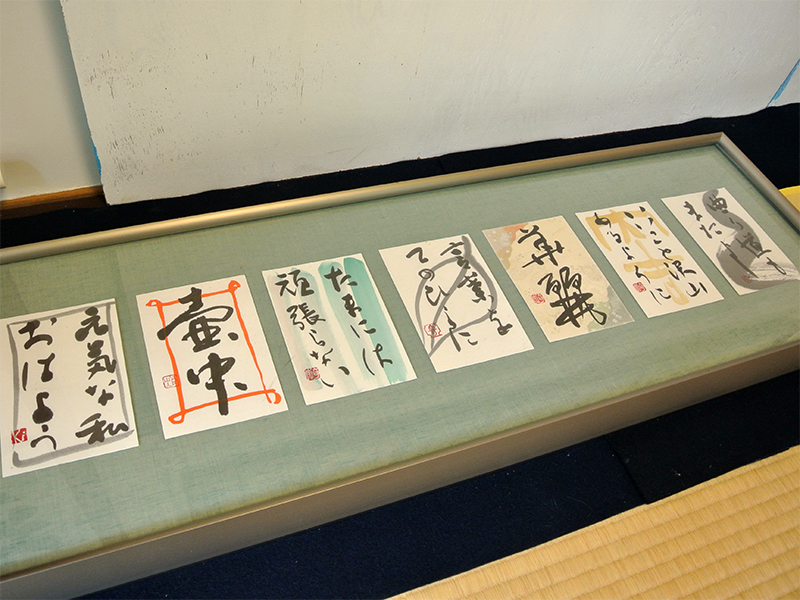 元気な私
おはよう
Ki
壷中
たまには
頑張らない
言葉を
てのひらに
華麗
いいこと沢山
あるように
曲り道も
また